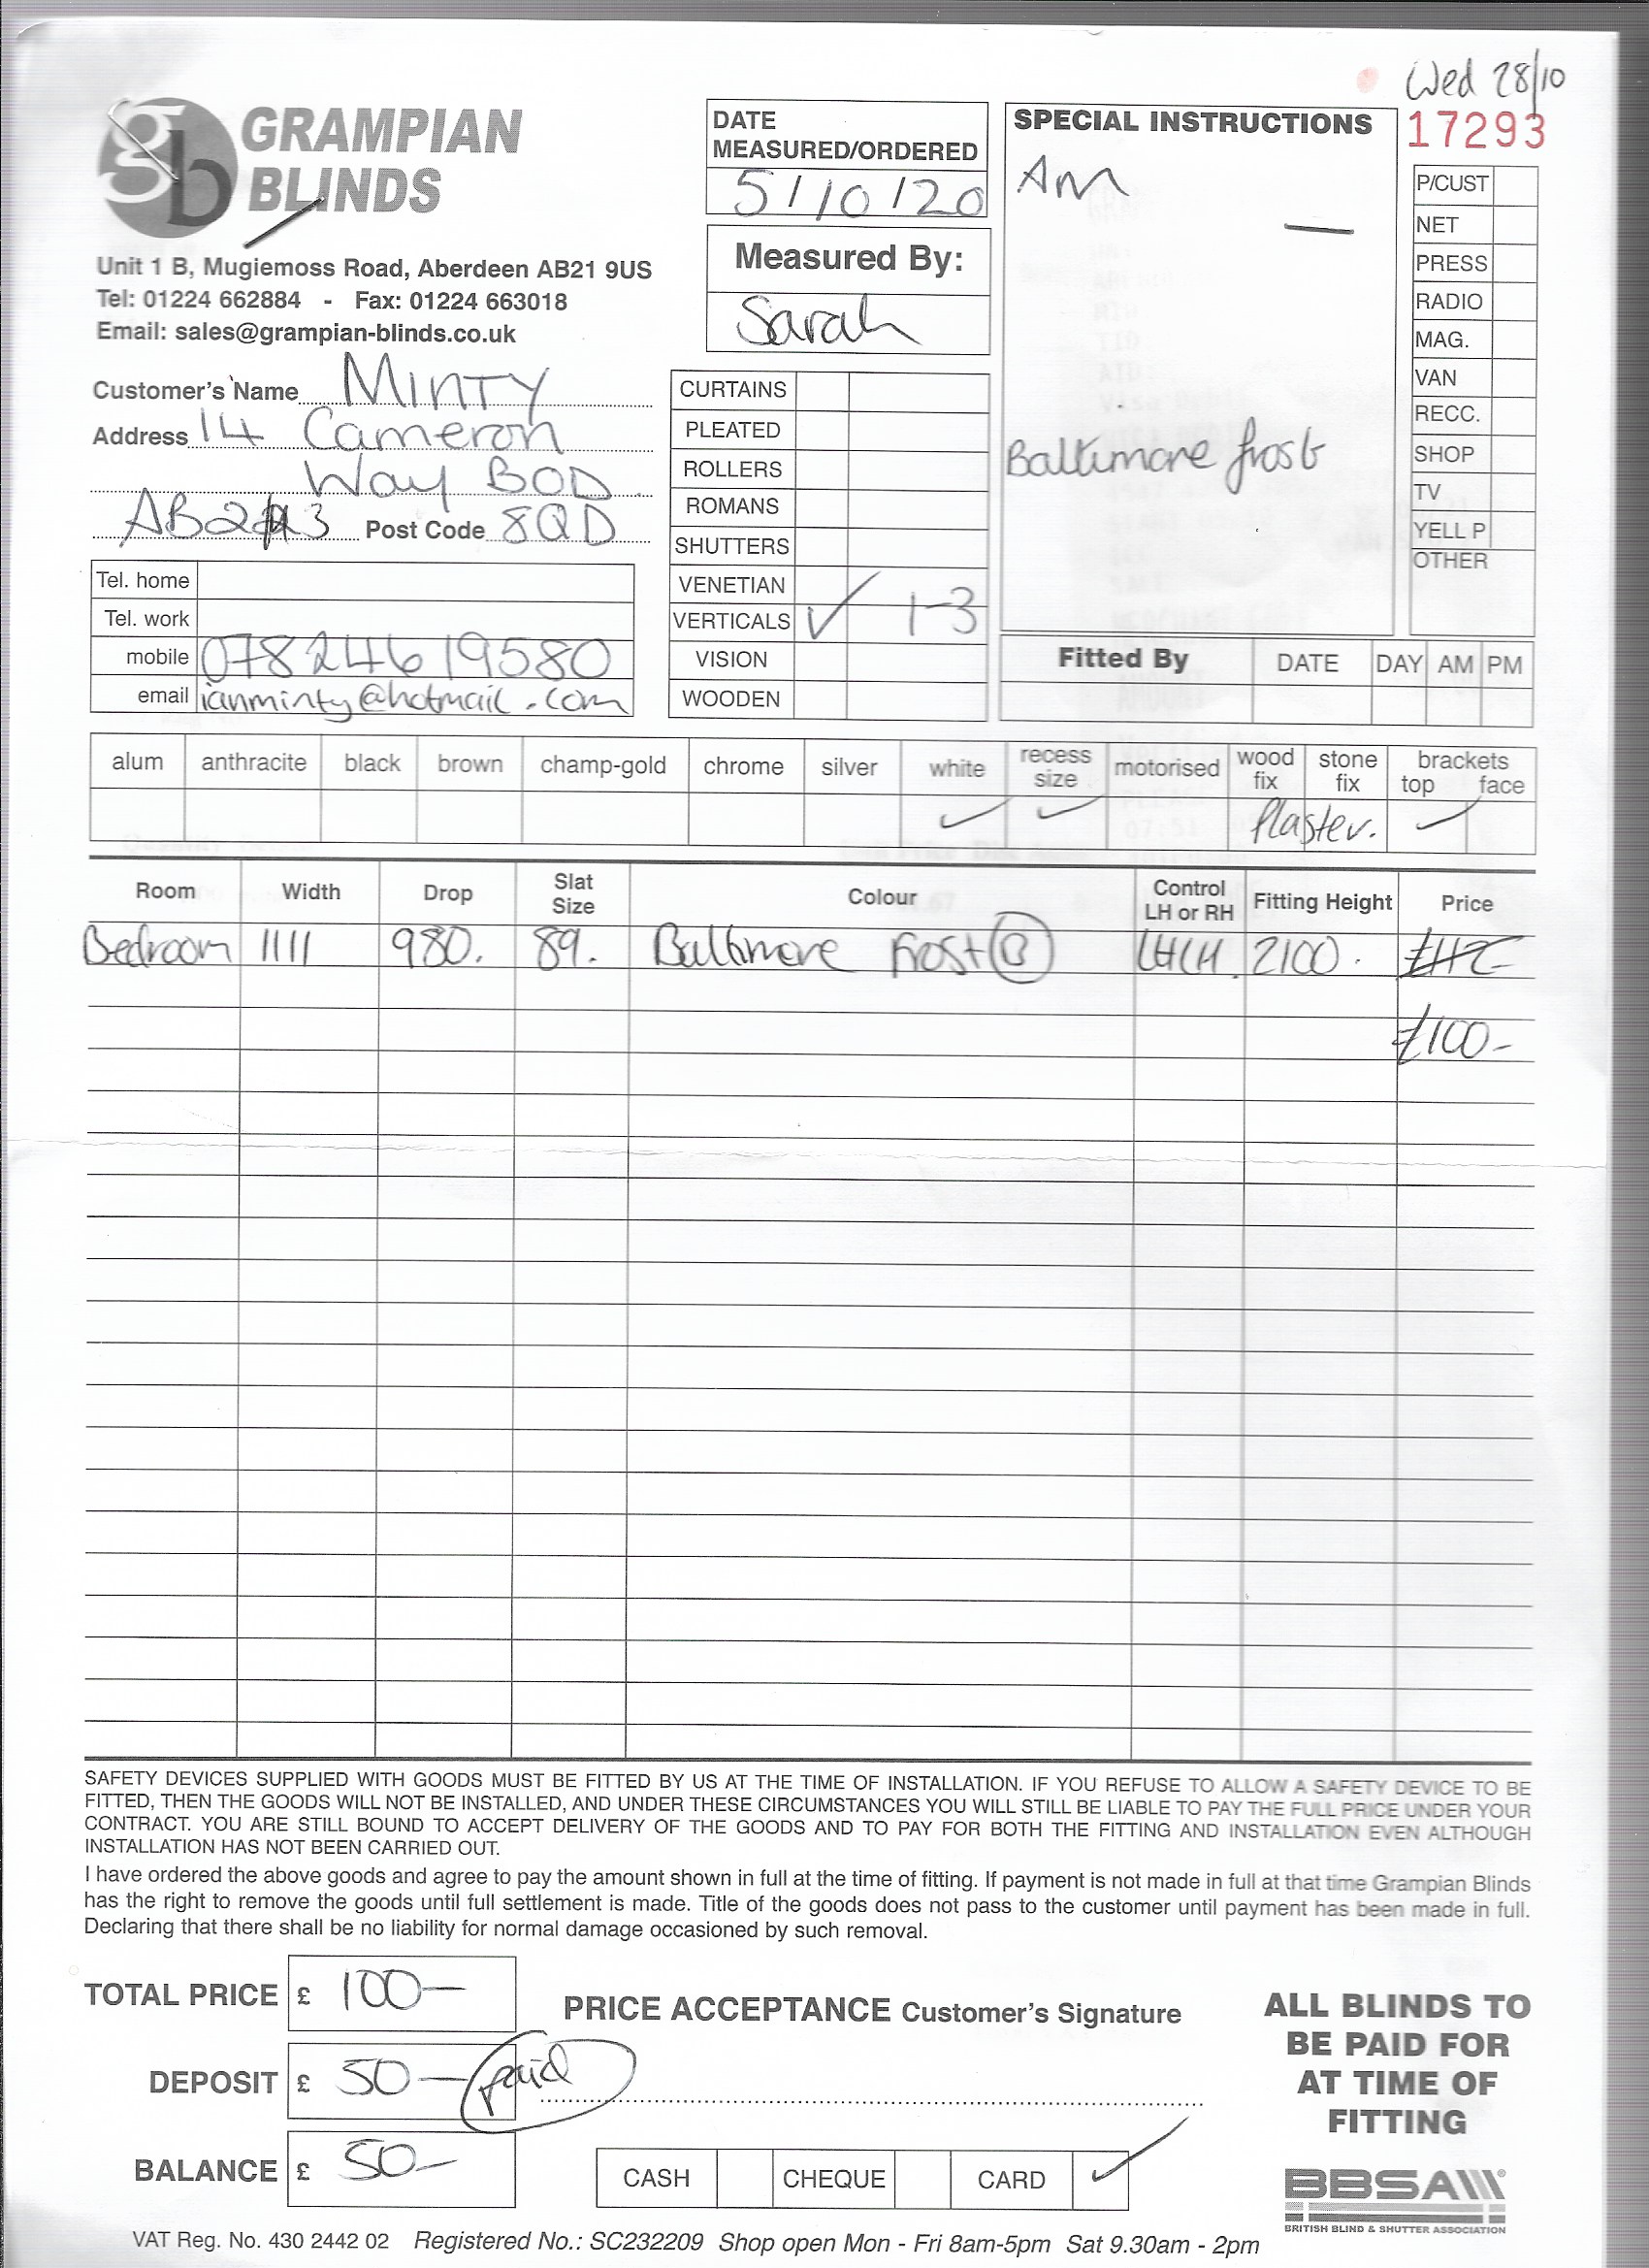 Wed 28/10
17293
gb GRAMPIAN
BLINDS
Unit 1 B, Mugiemoss Road, Aberdeen AB21 9US
Tel: 01224 662884 - Fax: 01224 663018
Email: sales@grampian-blinds.co.uk
Customer's Name Minty
Address 14 Cameron
Way BOD
AB23 Post Code 8QD
Tel. home
Tel. work
mobile 07824619580
email ianminty@hotmail.com
DATE
MEASURED/ORDERED
5/10/20
Measured By:
Sarah
CURTAINS
PLEATED
ROLLERS
ROMANS
SHUTTERS
VENETIAN
VERTICALS ✓ 1-3
VISION
WOODEN
SPECIAL INSTRUCTIONS
Am
Baltimore frost
P/CUST
NET
PRESS
RADIO
MAG.
VAN
RECC.
SHOP
TV
YELL P
OTHER
Fitted By DATE DAY AM PM
alum anthracite black brown champ-gold chrome silver white recess size motorised wood fix stone fix brackets top face
✓ ✓ Plaster. ✓
Room Width Drop Slat Size Colour Control LH or RH Fitting Height Price
Bedroom 1111 980. 89. Baltimore Frost B LHCH. 2100.
£100-
SAFETY DEVICES SUPPLIED WITH GOODS MUST BE FITTED BY US AT THE TIME OF INSTALLATION. IF YOU REFUSE TO ALLOW A SAFETY DEVICE TO BE
FITTED, THEN THE GOODS WILL NOT BE INSTALLED, AND UNDER THESE CIRCUMSTANCES YOU WILL STILL BE LIABLE TO PAY THE FULL PRICE UNDER YOUR
CONTRACT. YOU ARE STILL BOUND TO ACCEPT DELIVERY OF THE GOODS AND TO PAY FOR BOTH THE FITTING AND INSTALLATION EVEN ALTHOUGH
INSTALLATION HAS NOT BEEN CARRIED OUT.
I have ordered the above goods and agree to pay the amount shown in full at the time of fitting. If payment is not made in full at that time Grampian Blinds
has the right to remove the goods until full settlement is made. Title of the goods does not pass to the customer until payment has been made in full.
Declaring that there shall be no liability for normal damage occasioned by such removal.
TOTAL PRICE £ 100-
DEPOSIT £ 50- paid
BALANCE £ 50-
PRICE ACCEPTANCE Customer's Signature
CASH CHEQUE CARD ✓
ALL BLINDS TO
BE PAID FOR
AT TIME OF
FITTING
BBSA
BRITISH BLIND & SHUTTER ASSOCIATION
VAT Reg. No. 430 2442 02 Registered No.: SC232209 Shop open Mon - Fri 8am-5pm Sat 9.30am - 2pm